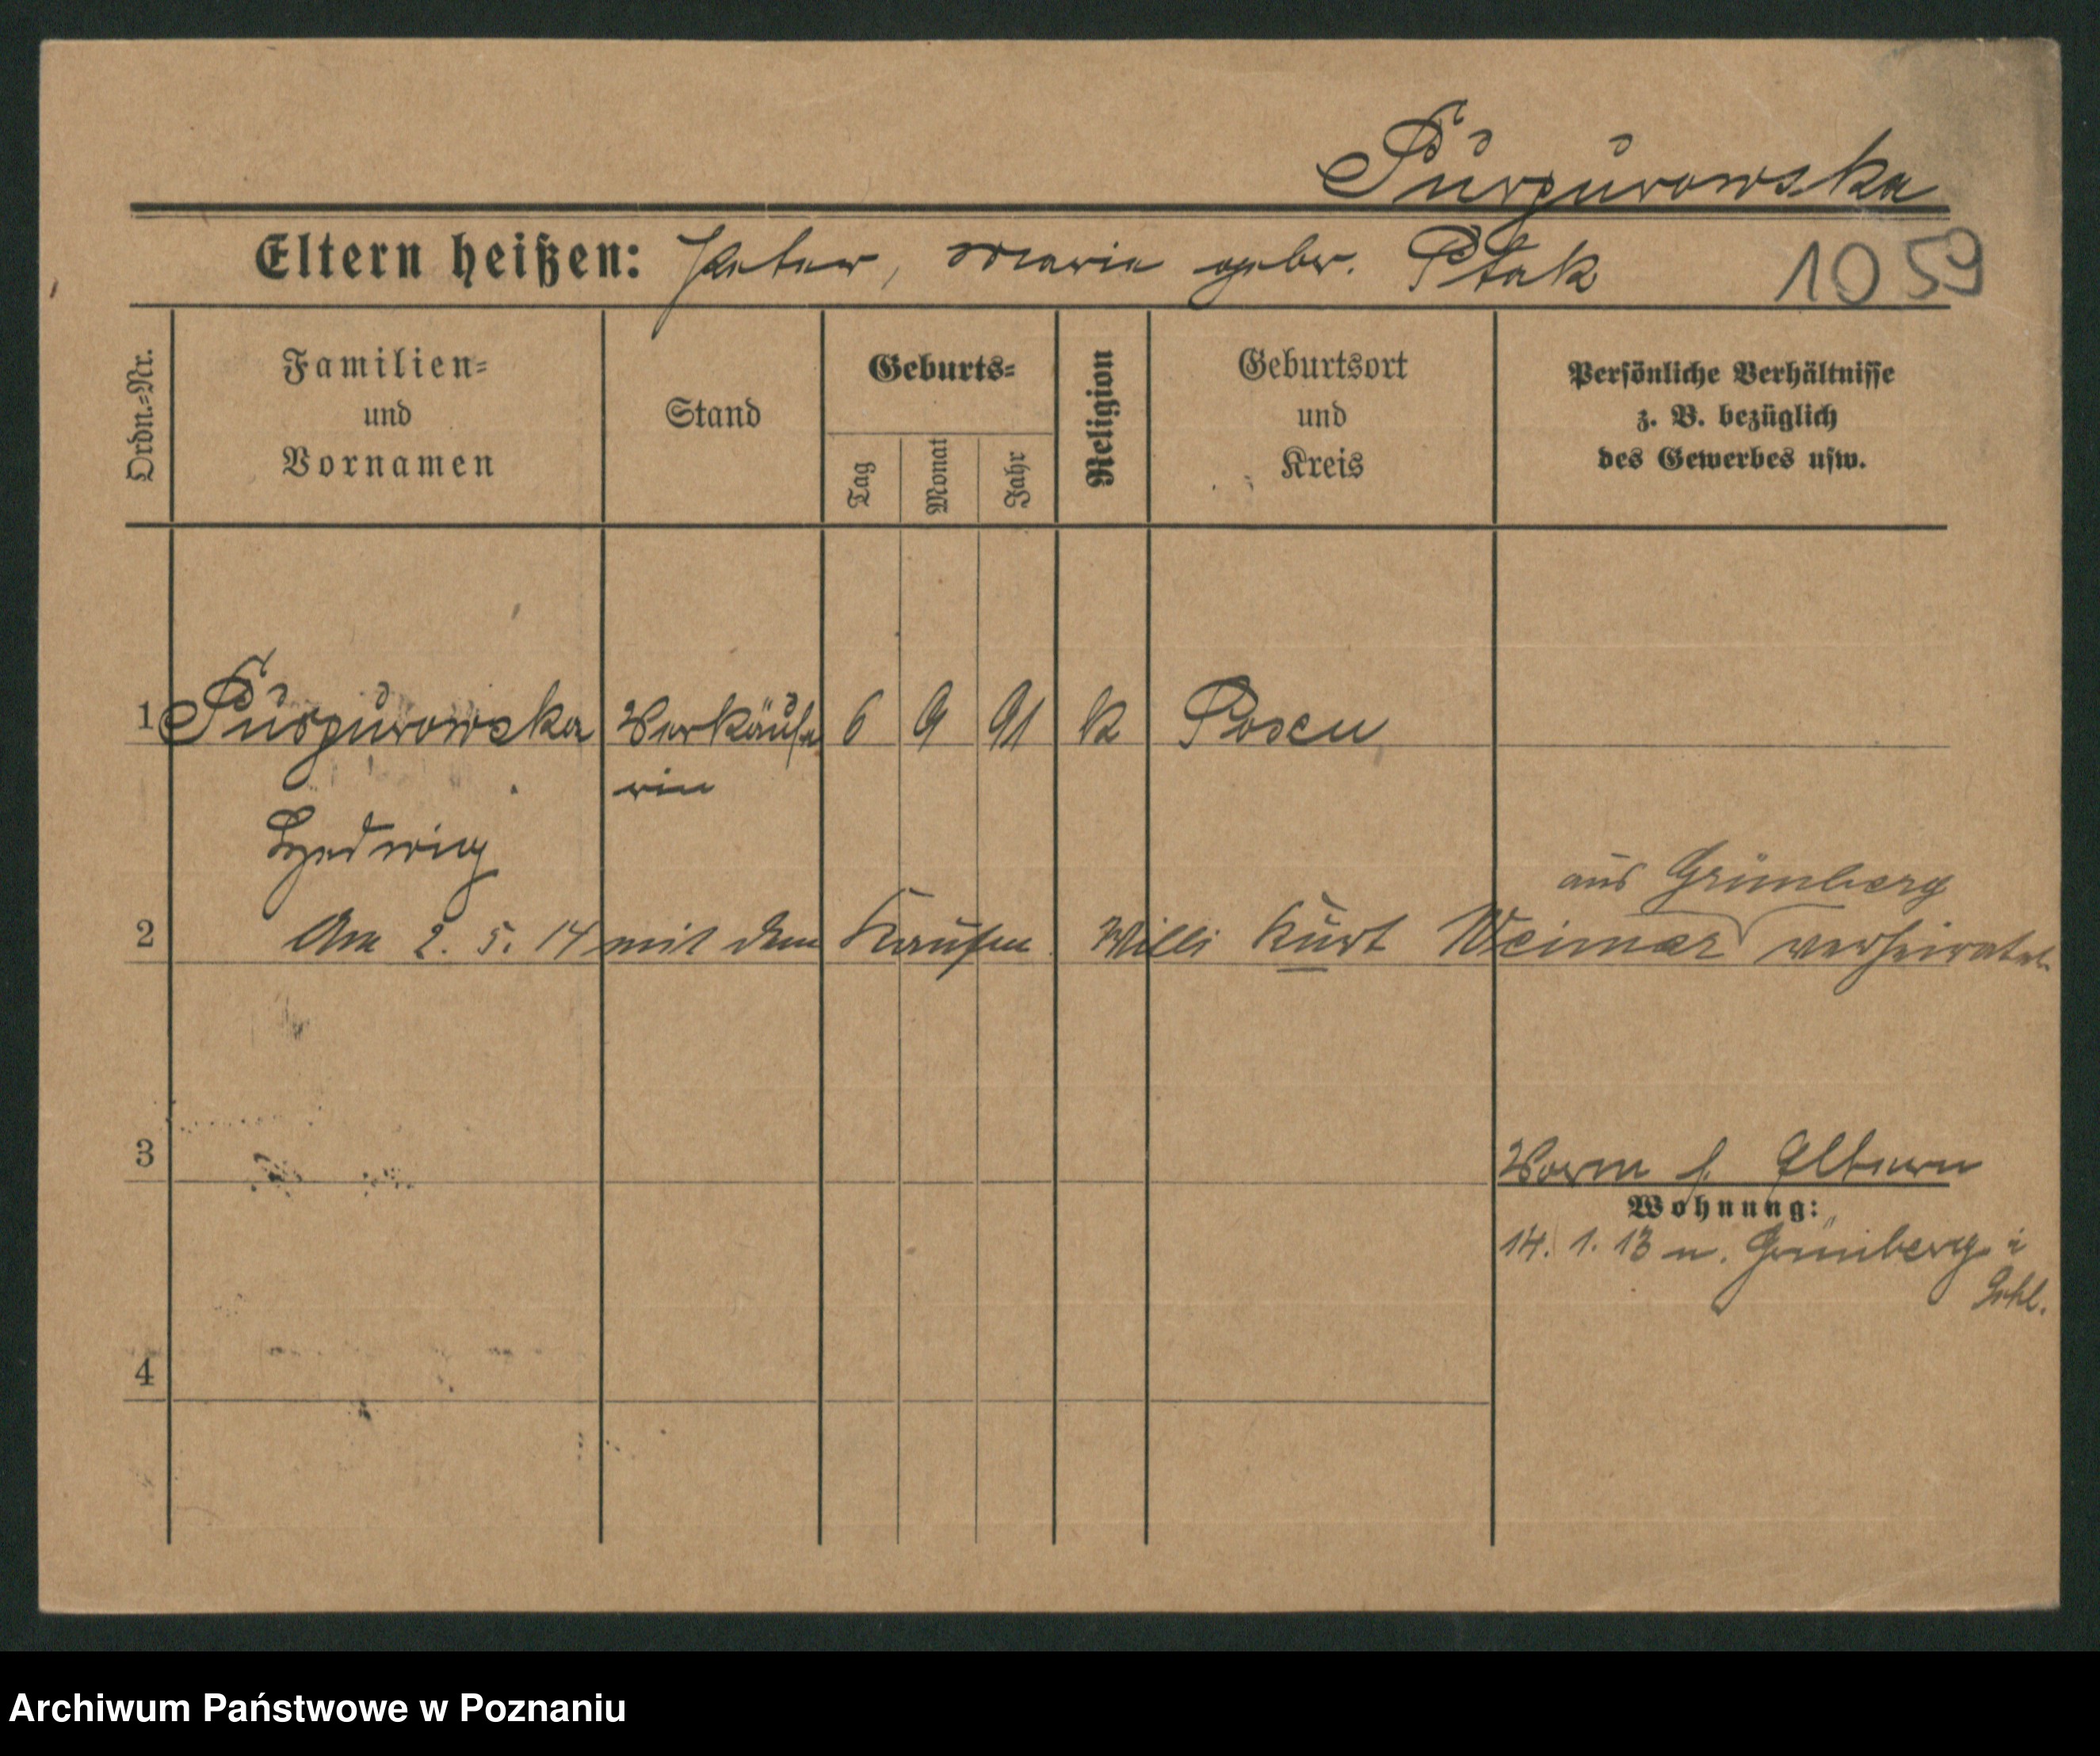 Purgurowska
Eltern heißen: Peter, Marie gebr. Ptak 1059
Ordn.=Nr.
Familien=
und
Vornamen
Stand
Geburts=
Tag
Monat
Jahr
Religion
Geburtsort
und
Kreis
Persönliche Verhältnisse
z. B. bezüglich
des Gewerbes usw.
1 Purgurowska Verkäufe 6 9 91 k Posen
rin
Hedwig
aus Grünberg
2 Am 2. 5. 14 mit dem Kaufm Willi Kurt Weimar verheiratet
3 Vorm f. Eltern
Wohnung:
14. 1. 13 n. Grünberg i
Schl.
4
Archiwum Państwowe w Poznaniu